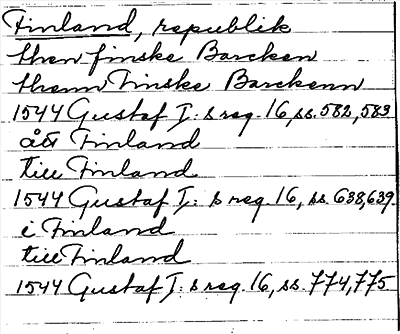 Finland, republik
then finske Barcken
themn Finske Barckenn
1544 Gustaf I: s reg. 16, ss. 582, 583
ått Finland
till Finland
1544 Gustaf I: s reg. 16, ss. 638, 639.
i Finland
till Finland
1544 Gustaf I: s reg. 16, ss. 774, 775